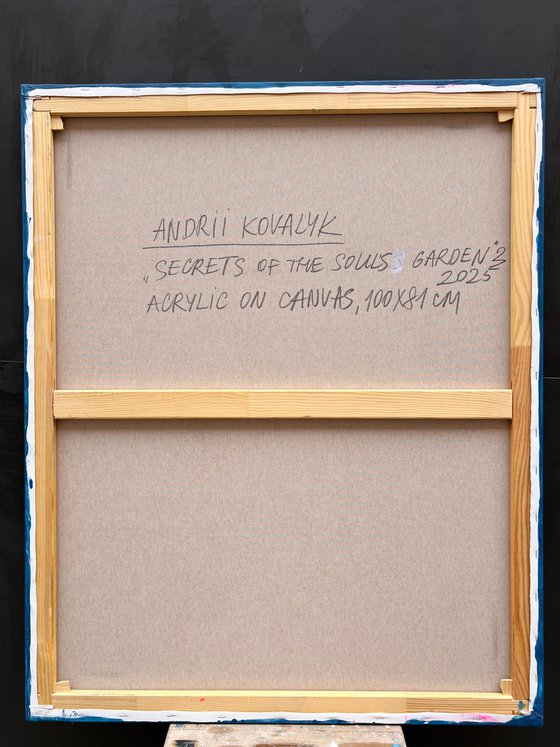 ANDRII KOVALYK
„SECRETS OF THE SOLUS GARDEN" 2
2025
ACRYLIC ON CANVAS, 100X81 CM